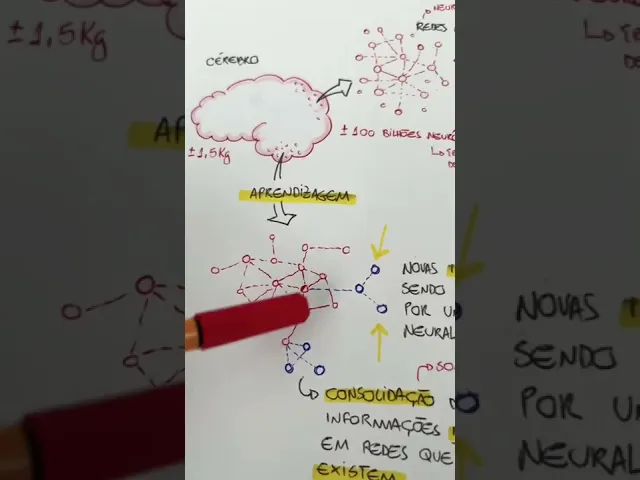 REDES
CÉREBRO
±1,5Kg
±100 BILHÕES
APRENDIZAGEM
NOVAS
SENDO
POR
NEURAL
CONSOLIDAÇÃO
INFORMAÇÕES
EM REDES QUE
EXISTEM
±1,5Kg
NOVAS
SENDO
POR
NEURAL